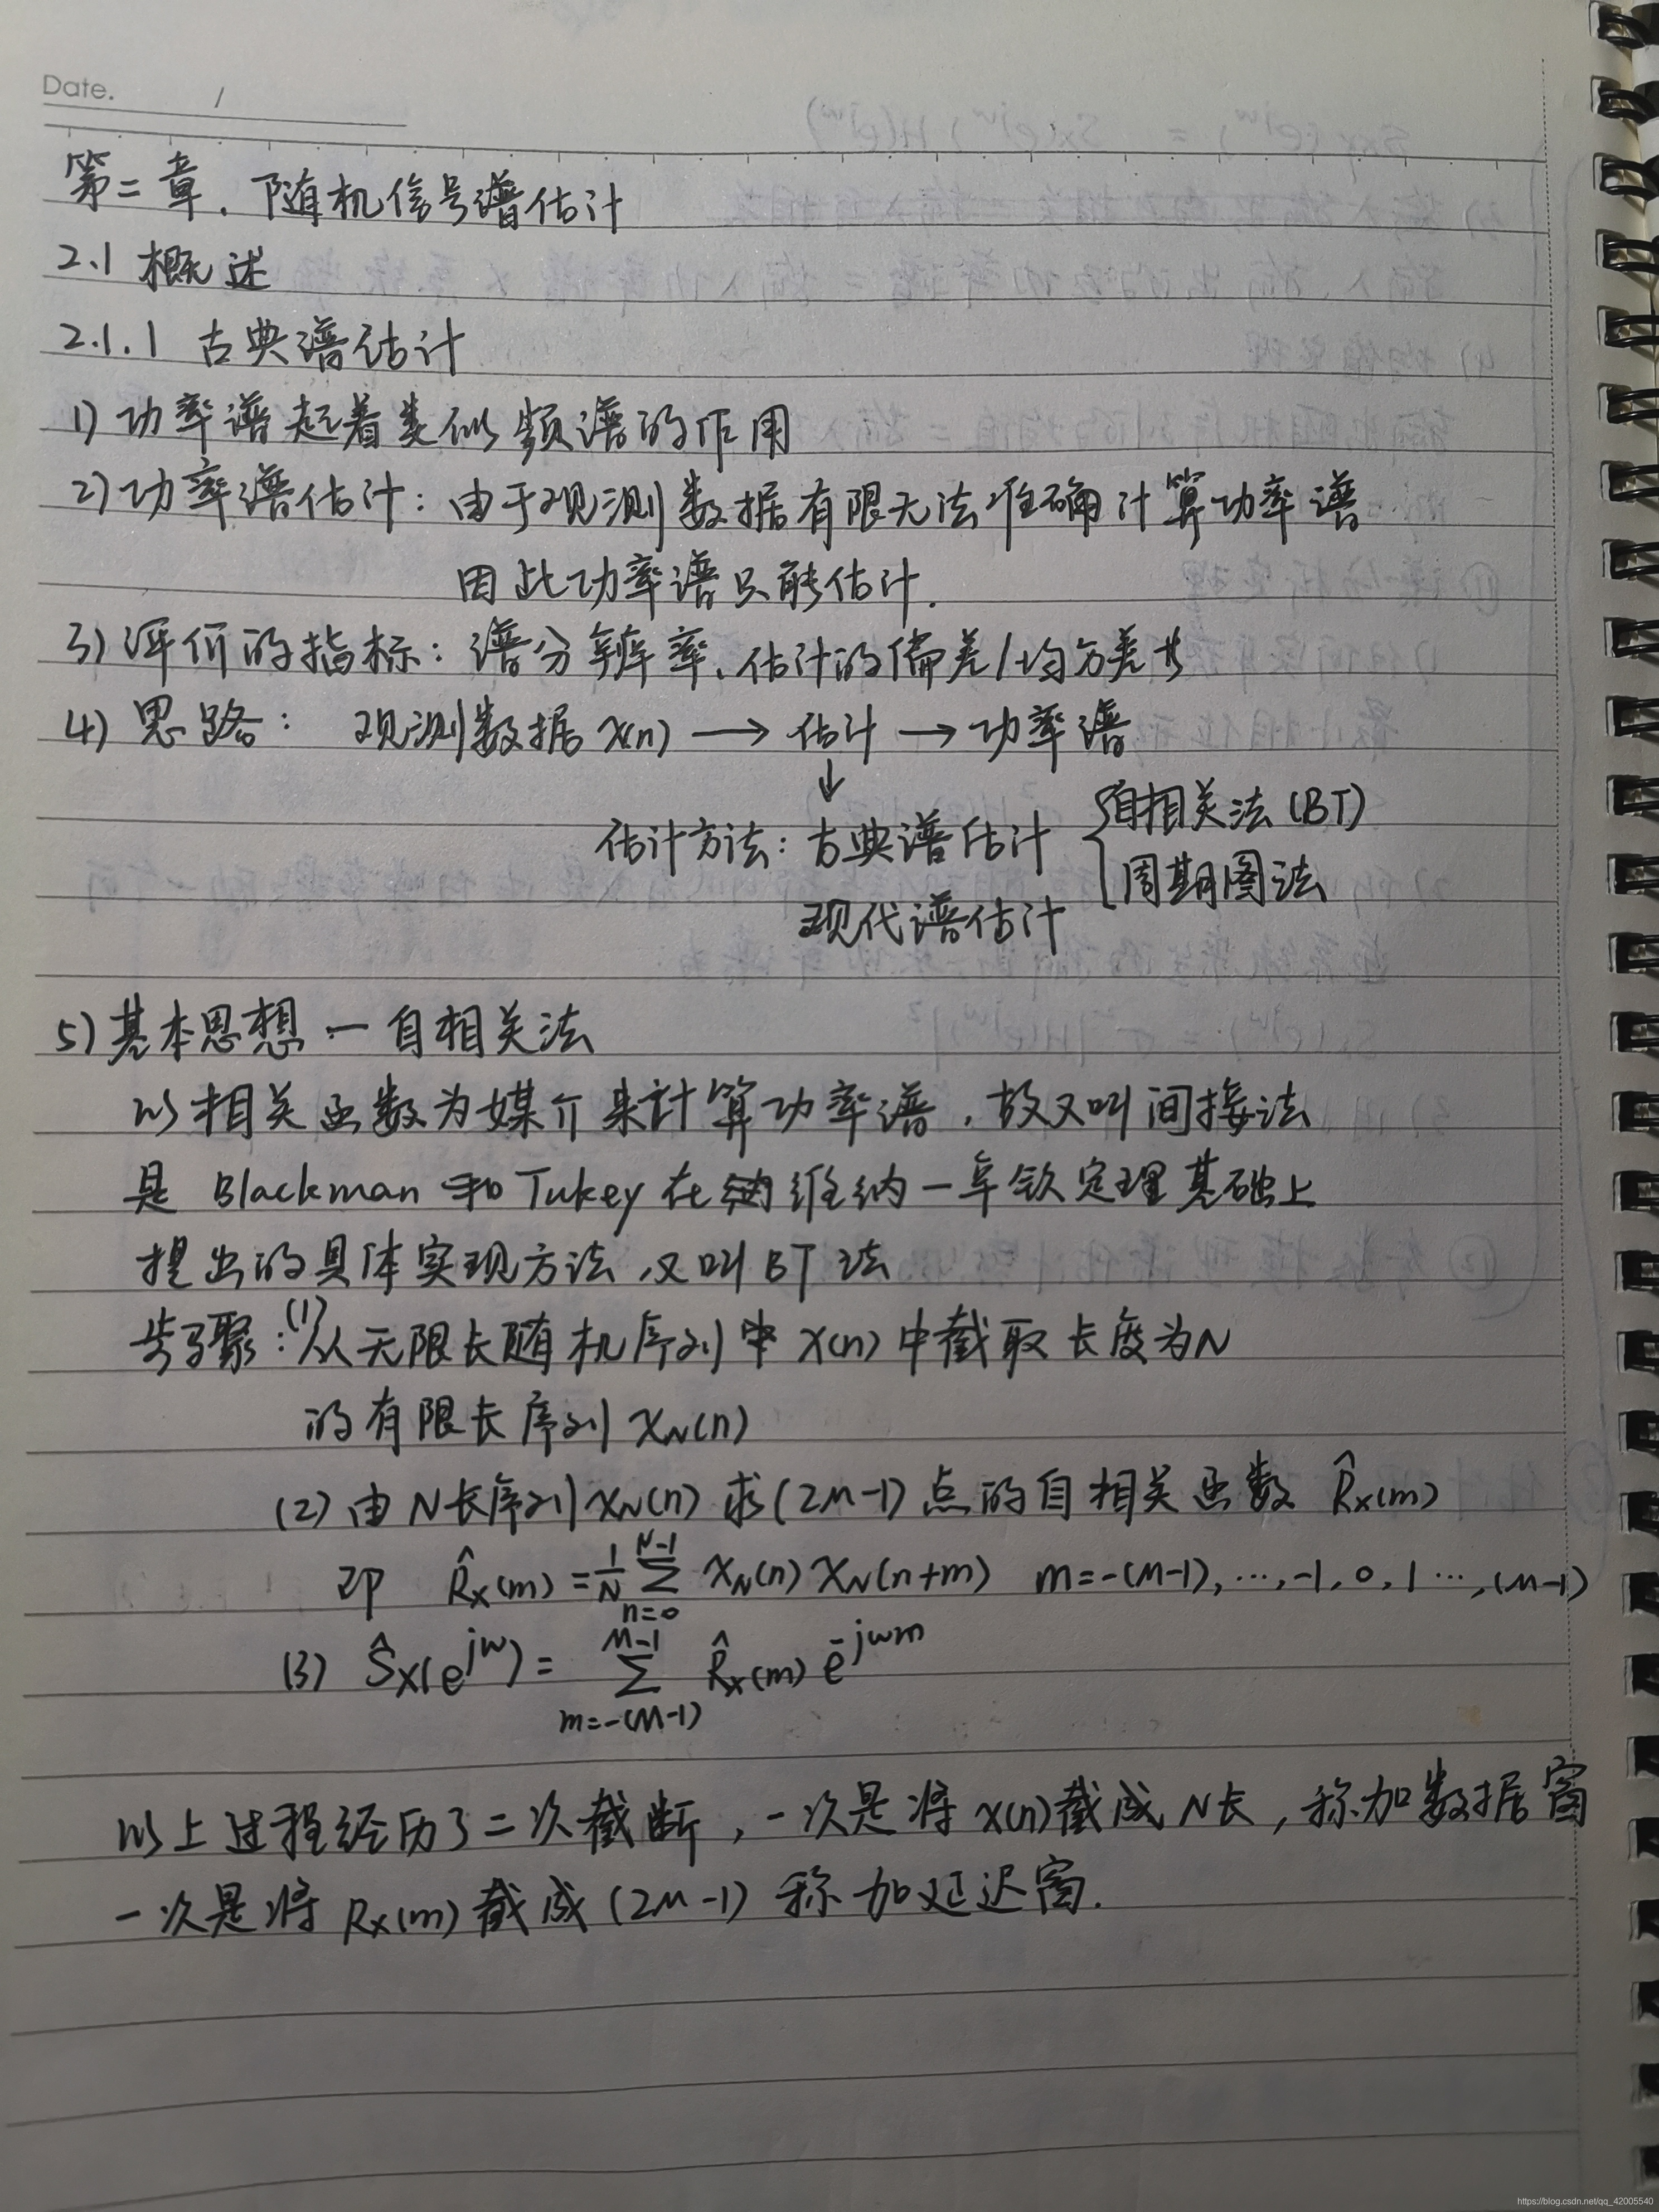 Date. /
第二章. 随机信号谱估计
2.1 概述
2.1.1 古典谱估计
1) 功率谱起着类似频谱的作用
2) 功率谱估计: 由于观测数据有限无法准确计算功率谱
因此功率谱只能估计.
3) 评价的指标: 谱分辨率、估计的偏差/均方差等
4) 思路: 观测数据 x(n) → 估计 → 功率谱
↓
估计方法: 古典谱估计 { 自相关法 (BT)
周期图法
现代谱估计
5) 基本思想 — 自相关法
以相关函数为媒介来计算功率谱, 故又叫间接法
是 Blackman 和 Tukey 在 维纳-辛钦定理基础上
提出的具体实现方法, 又叫 BT 法
步骤: (1) 从无限长随机序列中 x(n) 中截取长度为N
的有限长序列 x_N(n)
(2) 由 N 长序列 x_N(n) 求 (2M-1) 点的自相关函数 R̂x(m)
即 R̂x(m) = 1/N ∑_{n=0}^{N-1} x_N(n) x_N(n+m) m=-(M-1), …, -1, 0, 1 …, (M-1)
(3) Ŝx(e^{jω}) = ∑_{m=-(M-1)}^{M-1} R̂x(m) e^{-jωm}
以上过程经历了二次截断, 一次是将 x(n) 截成 N 长, 称加数据窗
一次是将 Rx(m) 截成 (2M-1) 称加延迟窗.
https://blog.csdn.net/qq_42005540